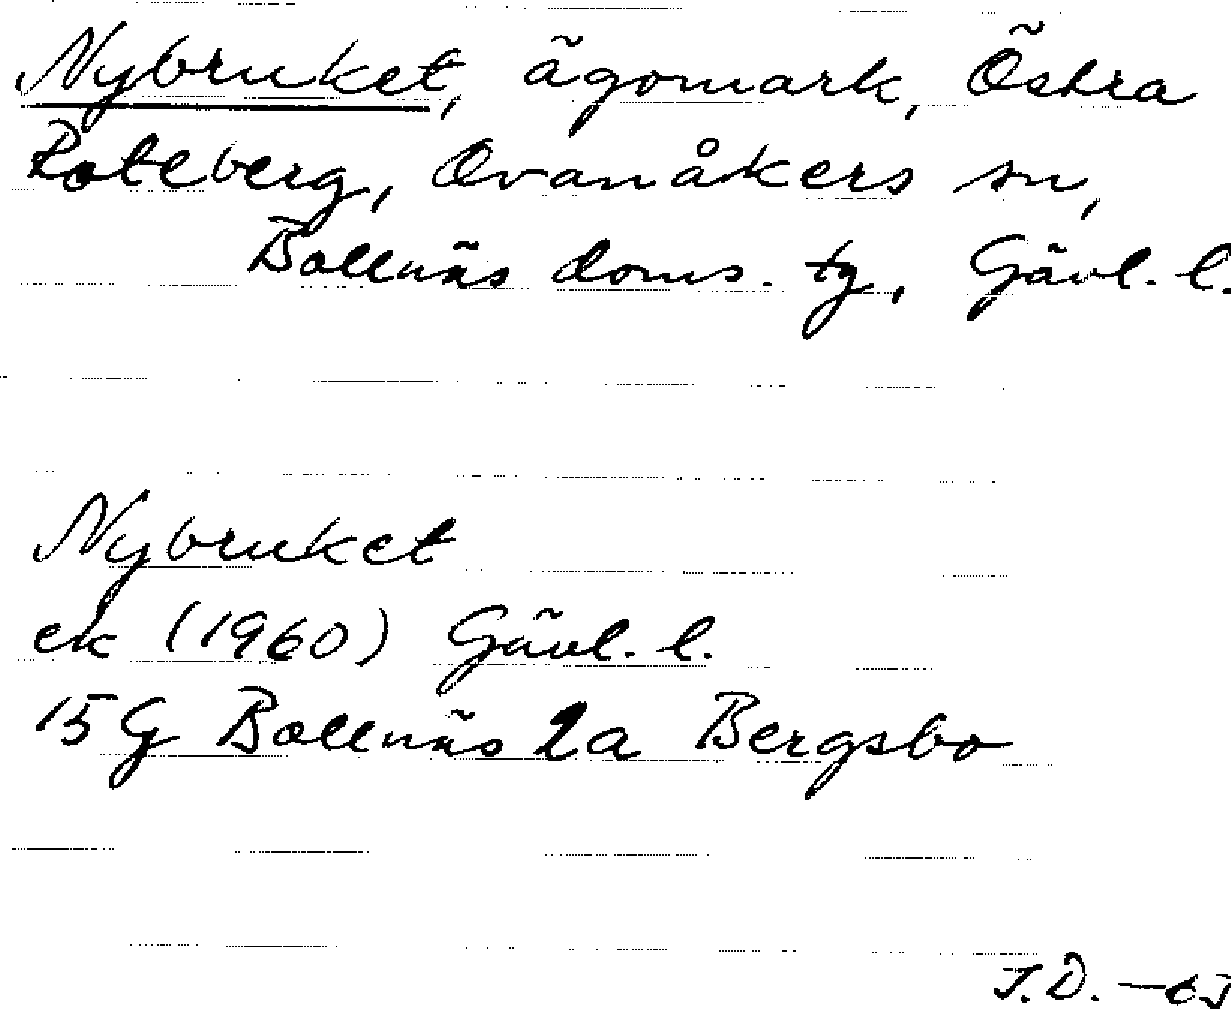 Nybruket, ägomark, Östra
Roteberg, Ovanåkers sn,
Bollnäs doms. tg, Gävl. l.
Nybruket
ek (1960) Gävl. l.
15G Bollnäs 2a Bergsbo
J.D.